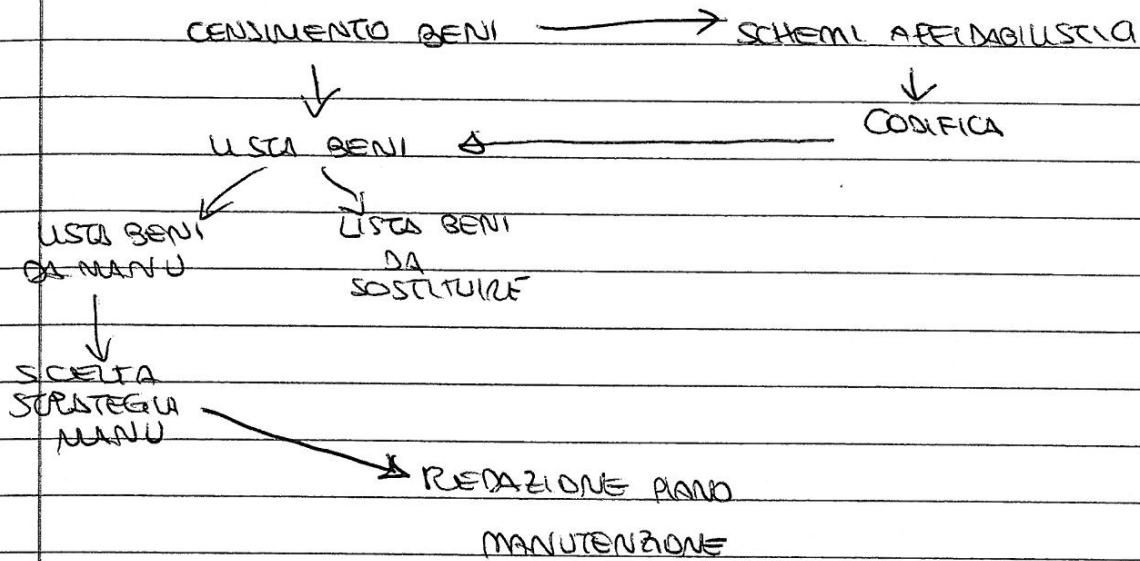 CENSIMENTO BENI → SCHEMI AFFIDABILISTICI
CODIFICA
LISTA BENI
LISTA BENI
DA MANU
LISTA BENI
DA
SOSTITUIRE
SCELTA
STRATEGIA
MANU
REDAZIONE PIANO
MANUTENZIONE